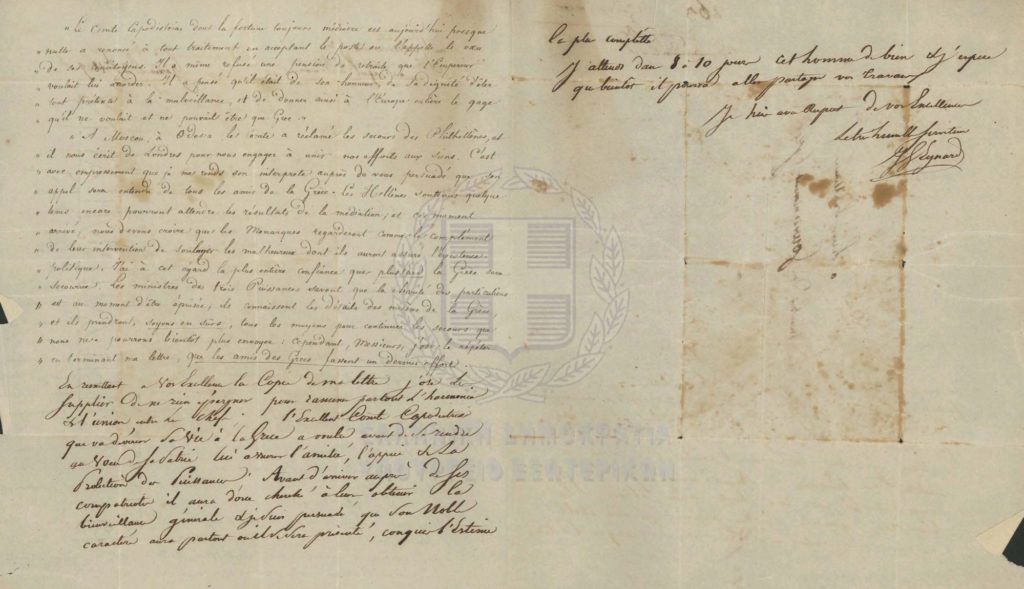 " Le Comte Capodistrias dont la fortune toujours médiocre est aujourd'hui presque
" nulle a renoncé à tout traitement en acceptant le poste où l'appelle le vœu
" de ses concitoyens. Il a même refusé une pension de retraite que l'Empereur
" voulait lui accorder. Il a pensé qu'il était de son honneur, de sa dignité d'ôter
" tout prétexte à la malveillance, et de donner ainsi à l'Europe entière le gage
" qu'il ne voulait et ne pouvait être que Grec.
" A Moscou, à Odessa le Comte a réclamé les secours des Philhellènes, et
" il nous écrit de Londres pour nous engager à unir nos efforts aux siens. C'est
" avec empressement que je me rends son interprète auprès de vous persuadé que son
" appel sera entendu de tous les amis de la Grèce. Les Hellènes soutenus quelque
" tems encore pourront attendre les résultats de la médiation; et ce moment
" arrivé, nous devons croire que les Monarques regarderont comme le complément
" de leur intervention de soulager les malheureux dont ils auront assuré l'existence
" politique. J'ai à cet égard la plus entière confiance que plus tard la Grèce sera
" secourue. Les ministres des trois Puissances savent que la charité des particuliers
" est au moment d'être épuisée; ils connaissent les détails des misères de la Grèce,
" et ils prendront, soyons en sûrs, tous les moyens pour continuer les secours que
" nous ne pourrons bientôt plus envoyer; Cependant, Messieurs, j'ose le répéter
" en terminant ma lettre, que les amis des Grecs fassent un dernier effort.
En remettant a Vos Excellences la Copie de ma lettre j'ose Le
Supplier de ne rien épargner pour ramener partout L'harmonie
Et l'union entre les chefs. l'Excellent Comte Capodistrias
que va dévouer Sa Vie à la Grèce a voulu avant de se rendre
au Vœu de Sa Patrie lui assurer l'amitié, l'appui et La
Protection des Puissances. Avant d'arriver auprès de Ses
compatriotes il aura donc cherché à leur obtenir la
bienveillance générale et je suis persuadé que Son Noble
caractère aura partout où il s'est présenté, conquis l'Estime
la plus complette
J'attends dans 8 à 10 jours cet homme de bien et j'espère
que bientôt il pourra aller partager vos travaux
Je suis avec Respect de vos Excellences
Le très humble serviteur
Eynard
ΕΛΛΗΝΙΚΗ ΔΗΜΟΚΡΑΤΙΑ
ΥΠΟΥΡΓΕΙΟ ΕΞΩΤΕΡΙΚΩΝ